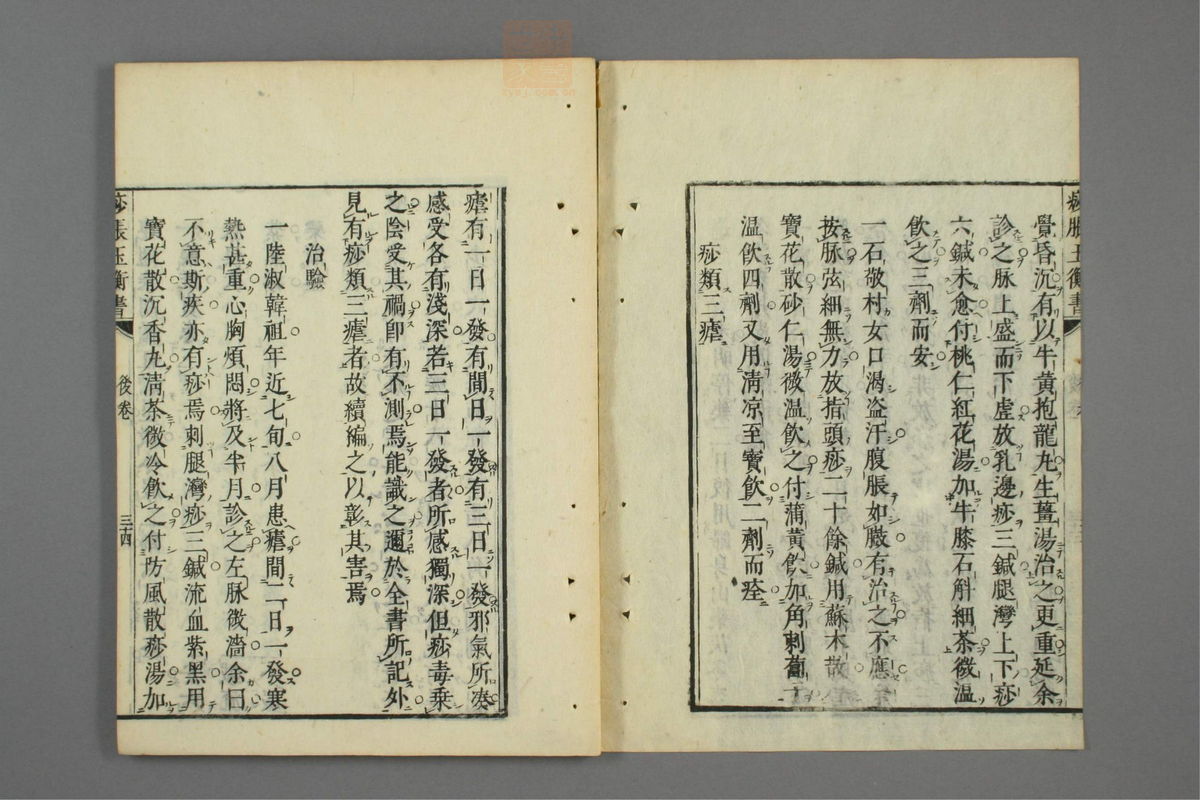 覺昏沉有以牛黃抱龍丸生薑湯治之更重延余
診之脉上盛而下虛放乳邊痧三鍼腿灣上下痧
六鍼未愈付桃仁紅花湯加牛膝石斛細茶微溫
飲之三劑而安
一石敬村女口渴盗汗腹脹如臌有治之不應余
按脉弦細無力放指頭痧二十餘鍼用蘇木散
寶花散砂仁湯微溫飲之付蒲黃飲加角刺蔔子
溫飲四劑又用清凉至寶飲二劑而痊
痧類三瘧
瘧有一日一發有間日一發有三日一發邪氣所凑
感受各有淺深若三日一發者所感獨深但痧毒乗
之陰受其禍卽有不測焉能識之邇於全書所記外
見有痧類三瘧者故續編之以彰其害焉
治驗
一陸淑韓祖年近七旬八月患瘧間二日一發寒
熱甚重心胸煩悶將及半月診之左脉微濇余曰
不意斯疾亦有痧焉刺腿灣痧三鍼流血紫黑用
寶花散沉香丸清茶微冷飲之付防風散痧湯加
痧脹玉衡書
後卷
三十四